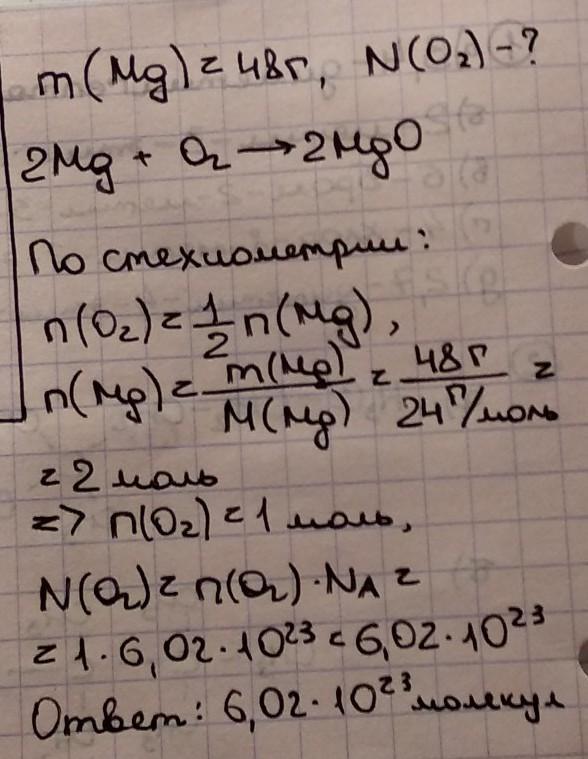 m(Mg) = 48г, N(O₂) - ?
2Mg + O₂ → 2MgO
По стехиометрии:
n(O₂) = 1/2 n(Mg),
n(Mg) = m(Mg)/M(Mg) = 48г/24г/моль =
= 2 моль
=> n(O₂) = 1 моль,
N(O₂) = n(O₂) · NA =
= 1 · 6,02 · 10²³ = 6,02 · 10²³
Ответ: 6,02 · 10²³ молекул